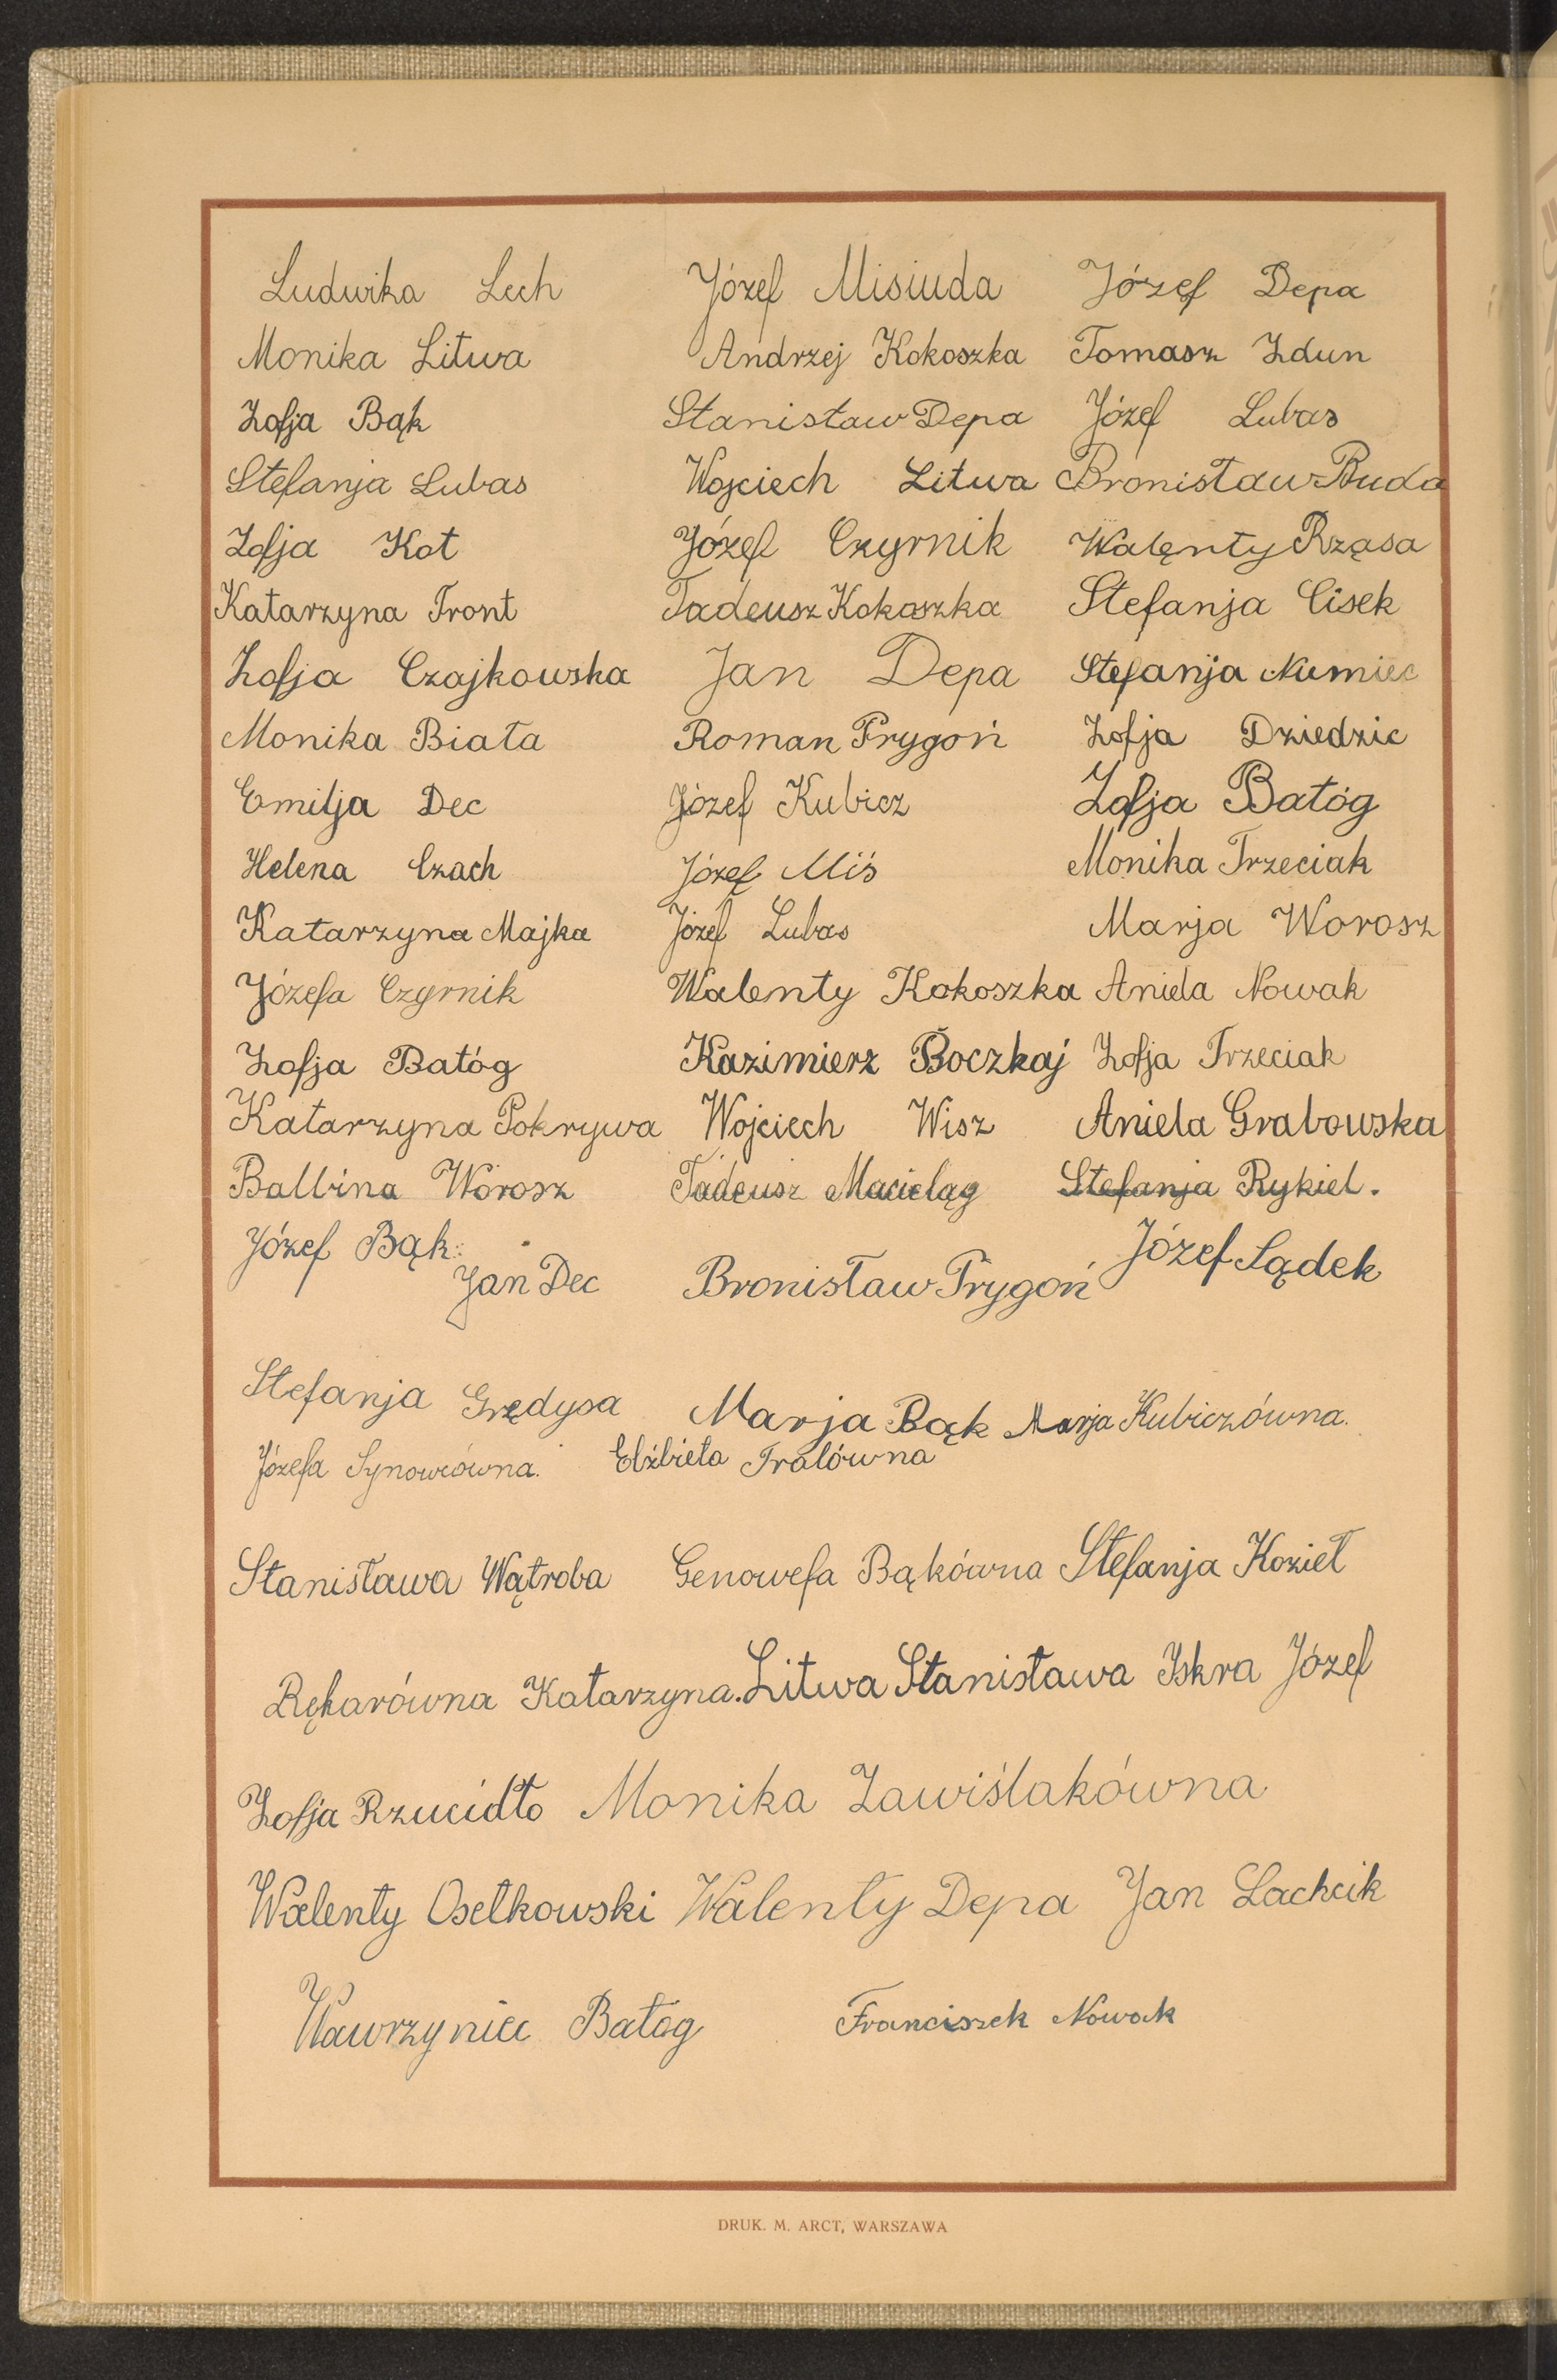 Ludwika Lech Józef Misiuda Józef Depa
Monika Litwa Andrzej Kokoszka Tomasz Zdun
Zofja Bąk Stanisław Depa Józef Lubas
Stefanja Lubas Wojciech Litwa Bronisław Buda
Zofja Kot Józef Czyrnik Walęnty Rząsa
Katarzyna Front Tadeusz Kokoszka Stefanja Cisek
Zofja Czajkowska Jan Depa Stefanja Numiec
Monika Biała Roman Prygoń Zofja Dziedzic
Emilja Dec Józef Kubicz Zofja Batóg
Helena Czach Józef Miś Monika Trzeciak
Katarzyna Majka Józef Lubas Marja Worosz
Józefa Czyrnik Walenty Kokoszka Aniela Nowak
Zofja Batóg Kazimierz Boczkaj Zofja Trzeciak
Katarzyna Pokrywa Wojciech Wisz Aniela Grabowska
Balbina Worosz Tadeusz Macieląg Stefanja Rykiel.
Józef Bąk Jan Dec Bronisław Prygoń Józef Sądek
Stefanja Grędysa Marja Bąk Marja Kubiczówna.
Józefa Synowcówna. Elżbieta Tralówna
Stanisława Wątroba Genowefa Bąkówna Stefanja Kozieł
Rękarówna Katarzyna. Litwa Stanisława Iskra Józef
Zofja Rzucidło Monika Zawiślakówna
Walenty Osetkowski Walenty Depa Jan Lachcik
Wawrzyniec Batóg Franciszek Nowak
DRUK. M. ARCT, WARSZAWA